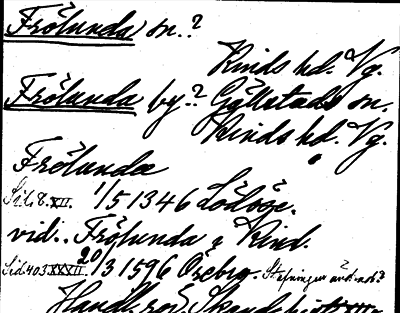 Frölunda sn.?
Kinds hd. Vg.
Frölunda by? Gällstads sn.
Kinds hd. Vg.
Frölunda
Sid. 8. XII. 1/5 1346 Lödöse.
vid. Frölunda i Kind.
Sid. 403 XXXII. 20/3 1596 Örebro.
Handl. rör. Skand.